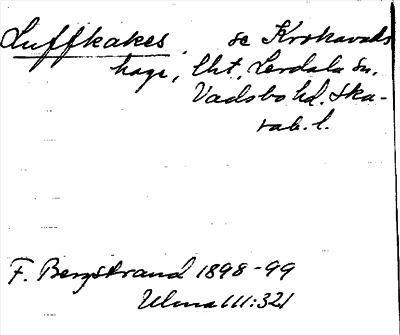 Luffkakes, se Krokavads
hage, lht, Lerdala sn,
Vadsbo hd. Ska-
rab. l.
F. Bergstrand 1898-99
Ulma 111:321